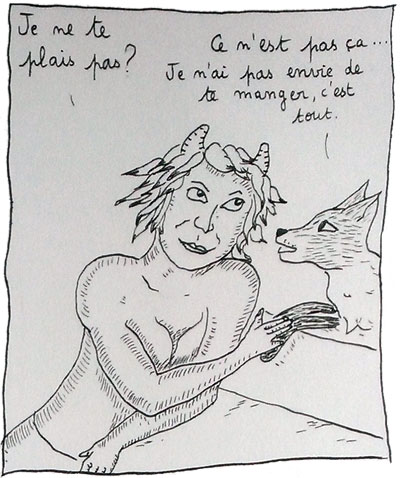 Je ne te
plais pas?
Ce n'est pas ça...
Je n'ai pas envie de
te manger, c'est
tout.